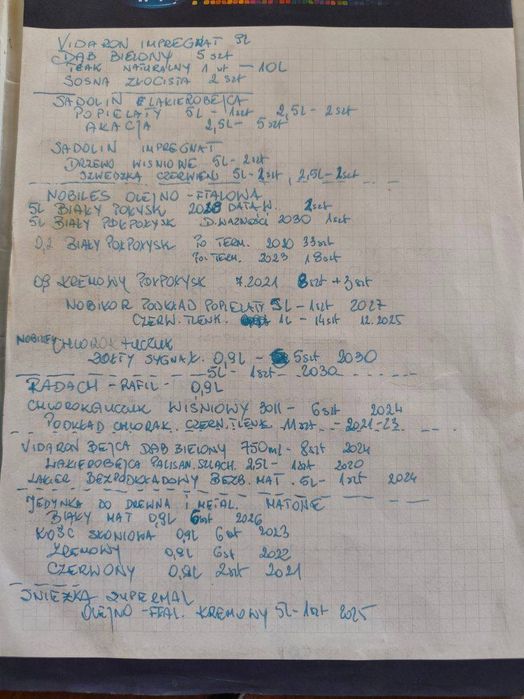 VIDARON IMPREGNAT 5L
DĄB BIELONY 5 szt
TEAK NATURALNY 1 szt — 10L
SOSNA ZŁOCISTA 2 szt
SADOLIN LAKIEROBEJCA
POPIELATY 5L - 1szt 2,5L - 2szt
AKACJA 2,5L - 5szt
SADOLIN IMPREGNAT
DRZEWO WIŚNIOWE 5L - 2szt
SZWEDZKA CZERWIEŃ 5L - 2szt, 2,5L - 2szt
NOBILES OLEJNO - FTALOWA
5L BIAŁY POŁYSK 2028 DATA W. 2szt
5L BIAŁY PÓŁPOŁYSK D. WAŻNOŚCI 2030 1szt
0,2 BIAŁY PÓŁPOŁYSK PO TERM. 2020 33szt
PO TERM. 2023 18szt
0,9 KREMOWY PÓŁPOŁYSK 7.2021 8szt + 3szt
NOBIKOR PODKŁAD POPIELATY 5L - 1szt 2027
CZERW. TLENK. 1L - 14szt 12.2025
NOBILES CHLOROKAUCZUK
ŻÓŁTY SYGNAŁ. 0,9L - 5szt 2030
5L - 1szt - 2030
RADACH - RAFIL - 0,9L
CHLOROKAUCZUK WIŚNIOWY 3011 - 6szt 2024
PODKŁAD CHLORAK. CZERW. TLENK. 11szt - 2021-23
VIDARON BEJCA DĄB BIELONY 750ml - 8szt 2024
LAKIEROBEJCA PALISAN. SZLACH. 2,5L - 1szt 2020
LAKIER BEZPODKŁADOWY BEZB. MAT. 5L - 1szt 2024
JEDYNKA DO DREWNA I METAL. MATOWE
BIAŁY MAT 0,9L 6szt 2026
KOŚĆ SŁONIOWA 0,9L 6szt 2023
KREMOWY 0,9L 6szt 2022
CZERWONY 0,9L 2szt 2021
ŚNIEŻKA SUPERMAL
OLEJNO - FTAL. KREMOWY 5L - 1szt 2025